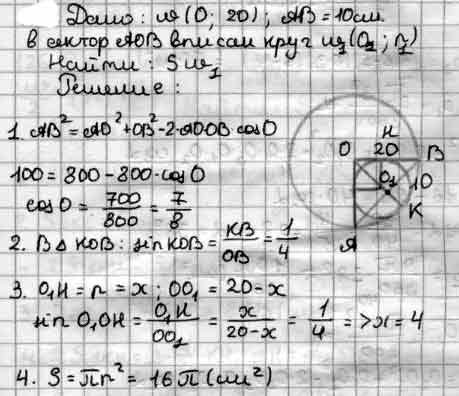 Дано: w(O; 20); AB = 10см
в сектор AOB вписан круг w₁(O₁; r₁)
Найти: Sw₁
Решение:
1. AB² = AO² + OB² - 2·AO·OB·cosO
100 = 800 - 800·cosO
cosO = 700/800 = 7/8
2. В Δ KOB: sin KOB = KB/OB = 1/4
3. O₁H = r = x; OO₁ = 20-x
sin O₁OH = O₁H/OO₁ = x/(20-x) = 1/4 => x = 4
4. S = πr² = 16π (см²)
H
O 20 B
O₁ 10
K
A